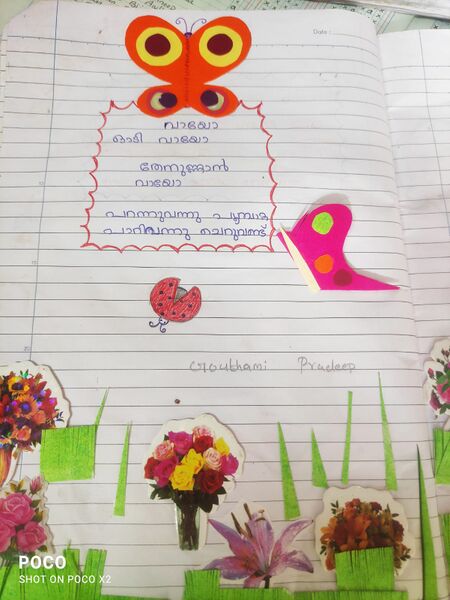 Date :
വായോ
ഓടി വായോ
തേനുണ്ണാൻ
വായോ
പറന്നുവന്നു
പാറിവന്നു ചെറുവണ്ട്
Gouthami Pradeep
POCO
SHOT ON POCO X2